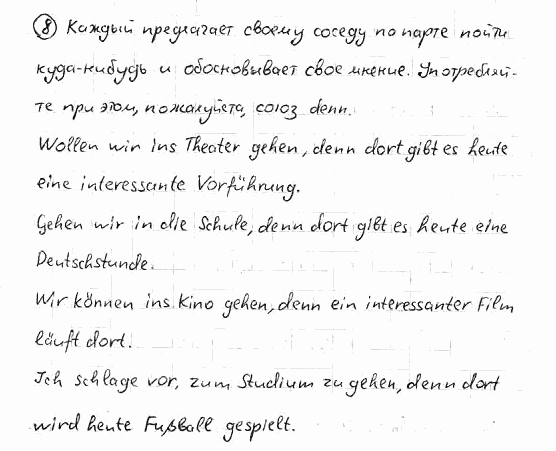 ⑧ Каждый предлагает своему соседу по парте пойти
куда-нибудь и обосновывает свое мнение. Употребляй-
те при этом, пожалуйста, союз denn.
Wollen wir ins Theater gehen, denn dort gibt es heute
eine interessante Vorführung.
Gehen wir in die Schule, denn dort gibt es heute eine
Deutschstunde.
Wir können ins Kino gehen, denn ein interessanter Film
läuft dort.
Ich schlage vor, zum Studium zu gehen, denn dort
wird heute Fußball gespielt.